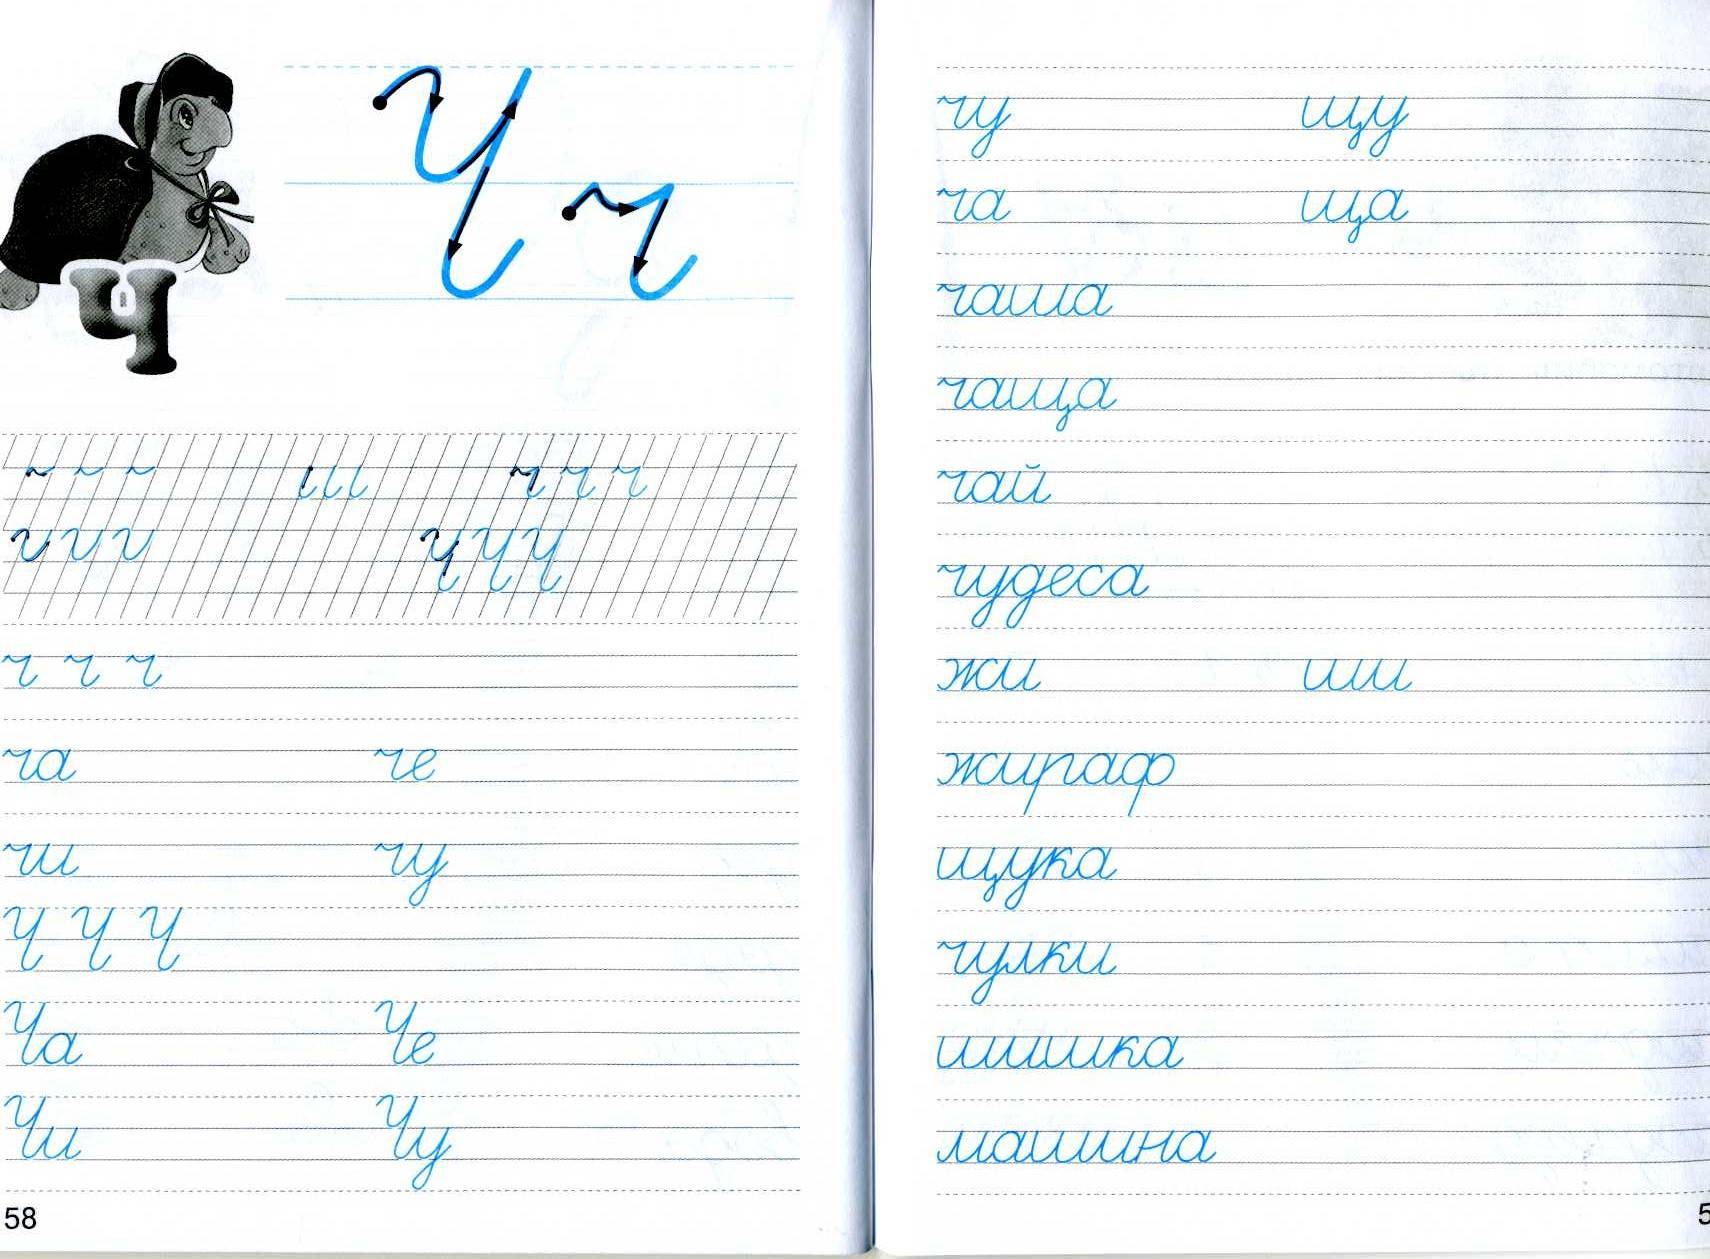 Ч
Ч ч
ч ч ч
Ч Ч Ч
ч ч ч
ча че
чи чу
Ч Ч Ч
Ча Че
Чи Чу
58
чу щу
ча ща
чаша
чаща
чай
чудеса
жи ши
жираф
щука
чулки
шишка
машина
5